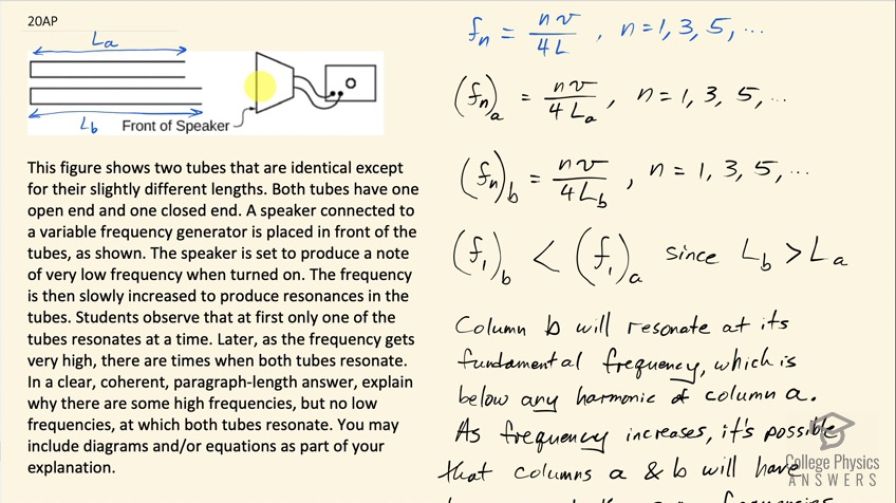 20AP
La
Lb
Front of Speaker
This figure shows two tubes that are identical except
for their slightly different lengths. Both tubes have one
open end and one closed end. A speaker connected to
a variable frequency generator is placed in front of the
tubes, as shown. The speaker is set to produce a note
of very low frequency when turned on. The frequency
is then slowly increased to produce resonances in the
tubes. Students observe that at first only one of the
tubes resonates at a time. Later, as the frequency gets
very high, there are times when both tubes resonate.
In a clear, coherent, paragraph-length answer, explain
why there are some high frequencies, but no low
frequencies, at which both tubes resonate. You may
include diagrams and/or equations as part of your
explanation.
fn = nv/4L , n=1, 3, 5, ...
(fn)a = nv/4La , n = 1, 3, 5, ...
(fn)b = nv/4Lb , n = 1, 3, 5, ...
(f1)b < (f1)a since Lb > La
Column b will resonate at its
fundamental frequency, which is
below any harmonic of column a.
As frequency increases, it's possible
that columns a & b will have
College Physics
ANSWERS